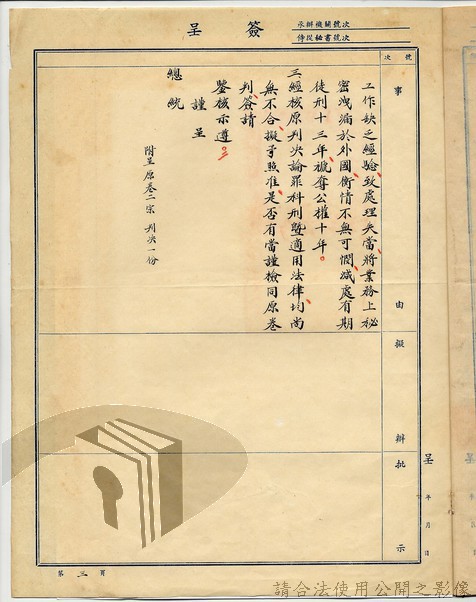 簽呈
承辦機關號次
侍從秘書號次
號次
事由
擬辦
批示
工作缺乏經驗致處理失當將業務上秘
密洩漏於外國衡情不無可憫減處有期
徒刑十三年褫奪公權十年。
三經核原判決論罪科刑暨適用法律均尚
無不合擬予照准是否有當謹檢同原卷
判簽請
鑒核示遵。
謹呈
總統
附呈原卷二宗判決一份
第三頁
呈 年 月 日
請合法使用公開之影像